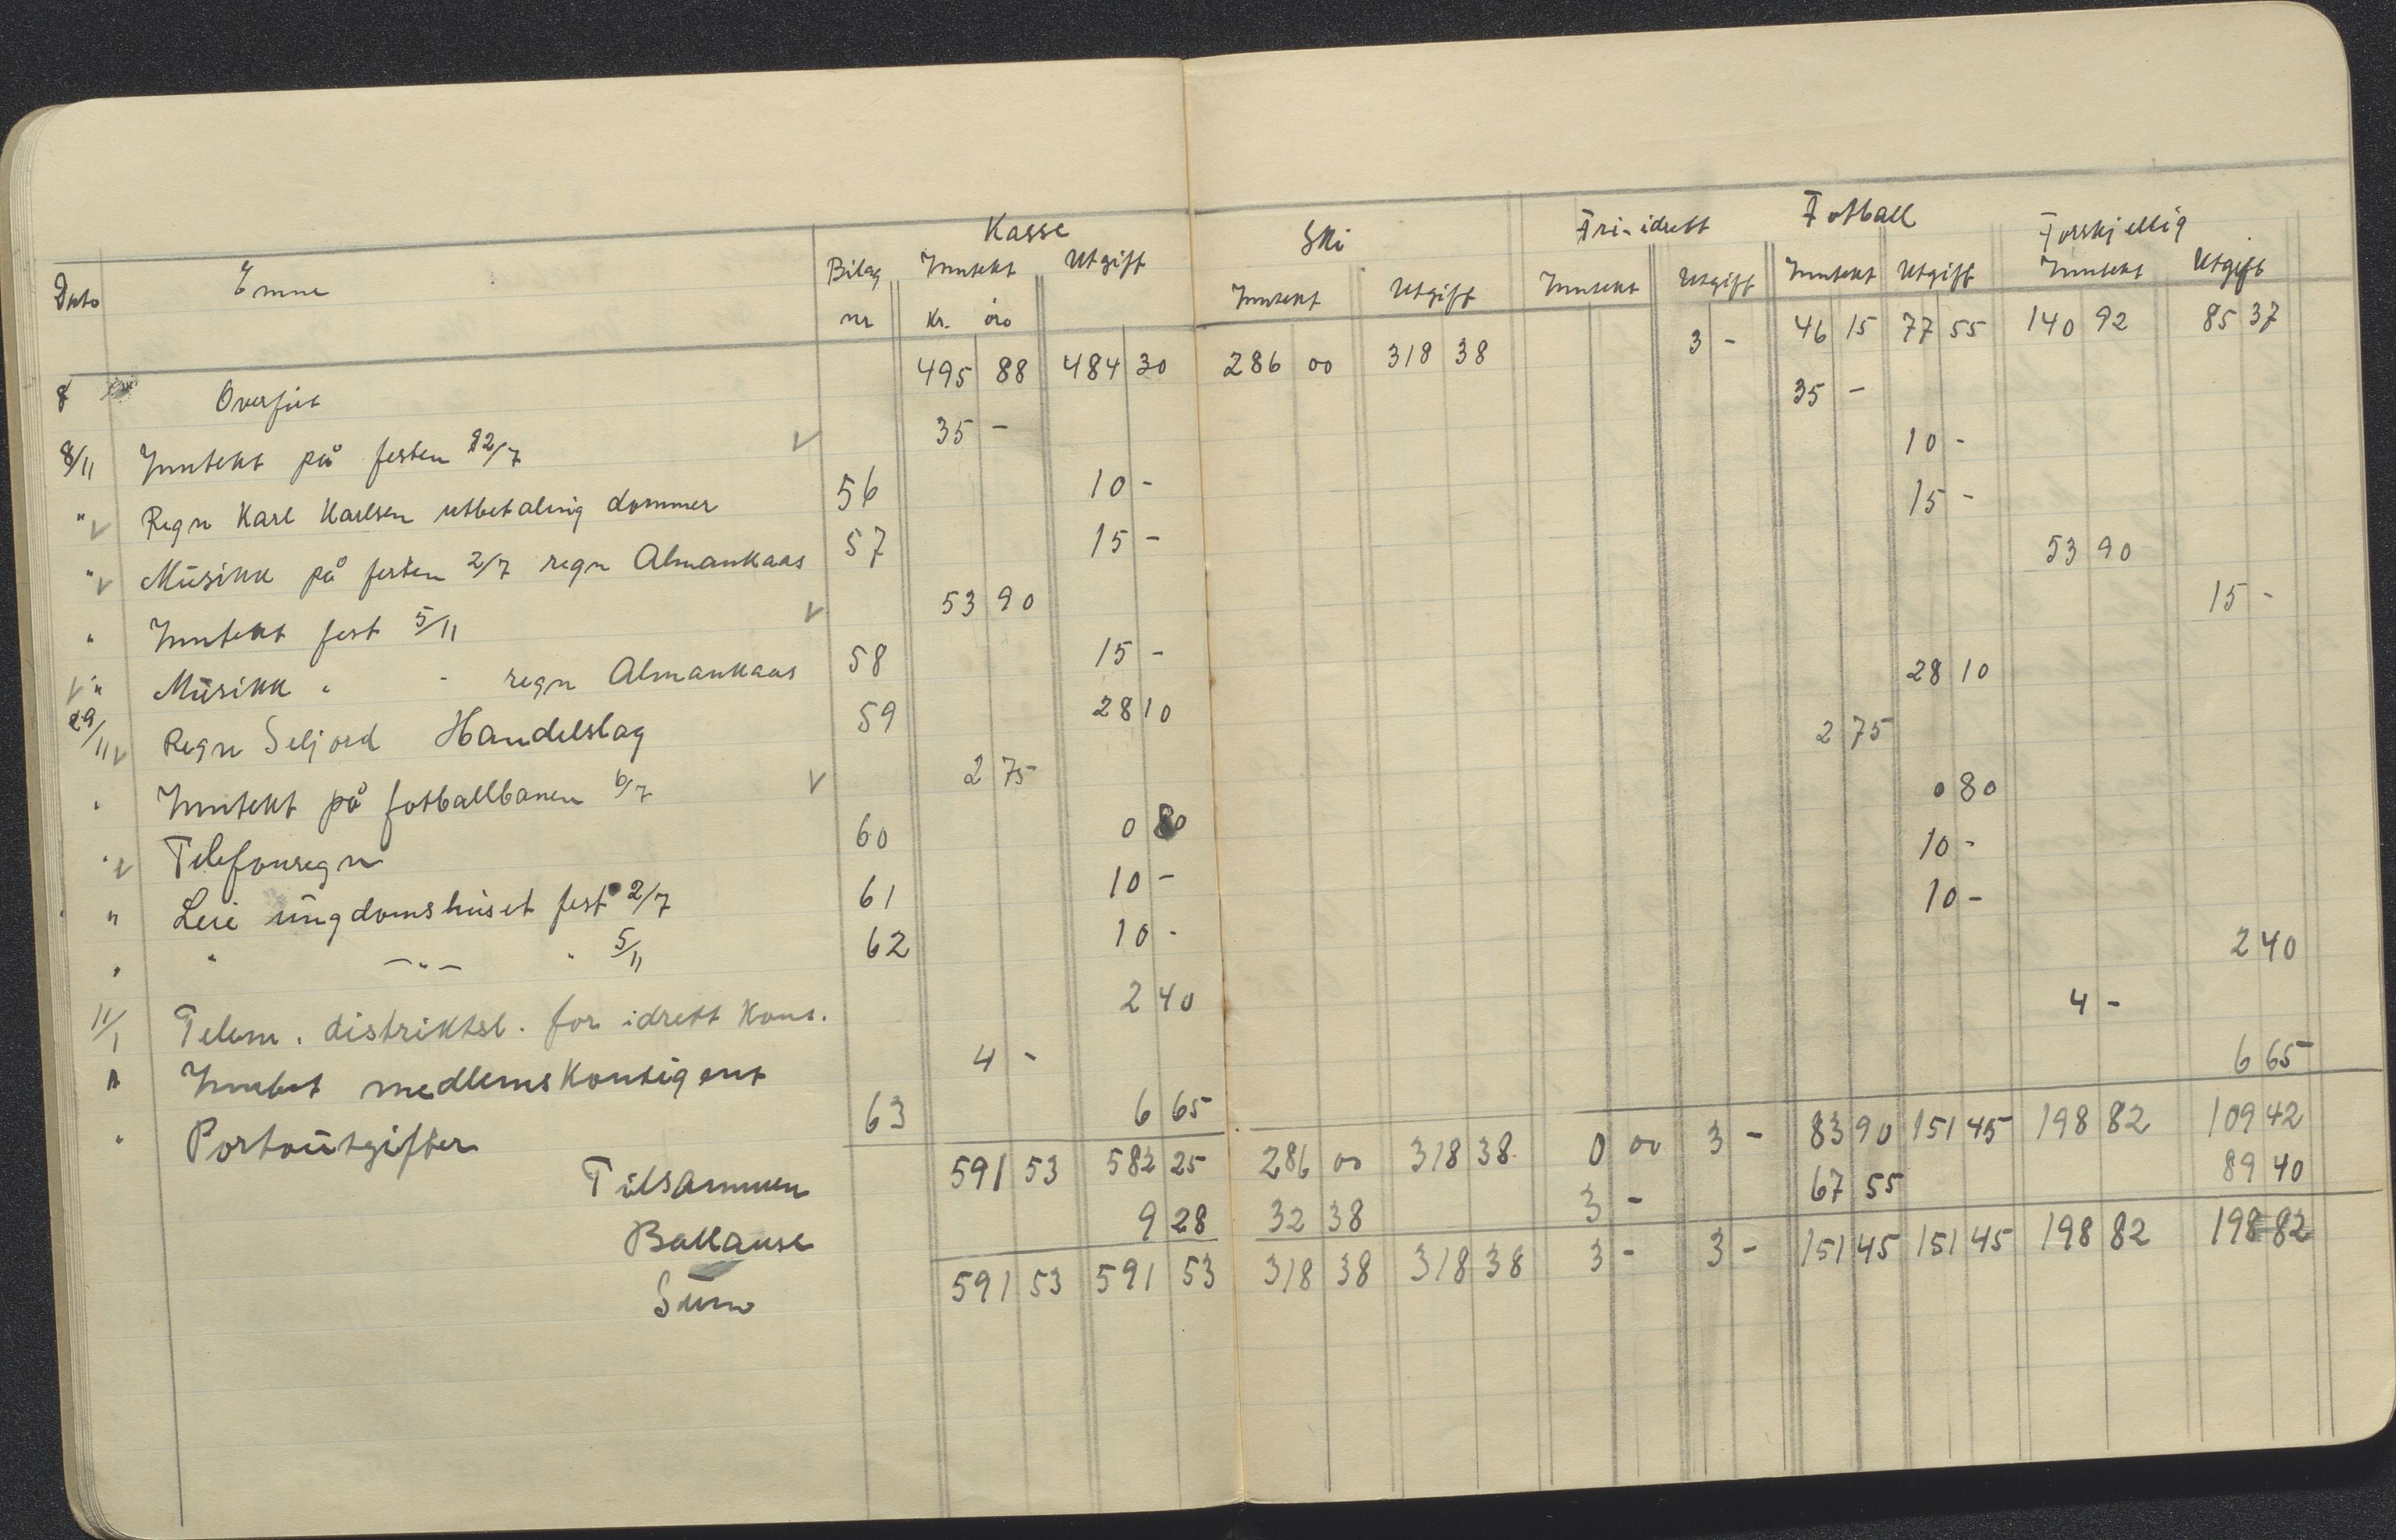 Kasse Ski Fri-idrett Fotball Forskjellig
Dato Emne Bilag nr Inntekt Utgift Inntekt Utgift Inntekt Utgift Inntekt Utgift Inntekt Utgift
Kr. øre
8 Overført 495 88 484 30 286 00 318 38 3 - 46 15 77 55 140 92 85 37
8/11 Inntekt på festen 2/7 35 - 35 -
" Regn Karl Karlsen utbetaling dommer 56 10 - 10 -
" Musikk på festen 2/7 regn Almankaas 57 15 - 15 -
" Inntekt fest 5/11 53 90 53 90
" Musikk " " regn Almankaas 58 15 - 15 -
29/11 Regn Seljord Handelslag 59 28 10 28 10
" Inntekt på fotballbanen 6/7 2 75 2 75
" Telefonregn 60 0 80 0 80
" Leie ungdomshuset fest 2/7 61 10 - 10 -
" " -"- " 5/11 62 10 - 10 -
11/1 Telem. distriktsl. for idrett Kont. 2 40 2 40
" Innbet medlemskontigent 4 - 4 -
" Portoutgifter 63 6 65 6 65
Tilsammen 591 53 582 25 286 00 318 38 0 00 3 - 83 90 151 45 198 82 109 42
Ballanse 9 28 32 38 3 - 67 55 89 40
Sum 591 53 591 53 318 38 318 38 3 - 3 - 151 45 151 45 198 82 198 82